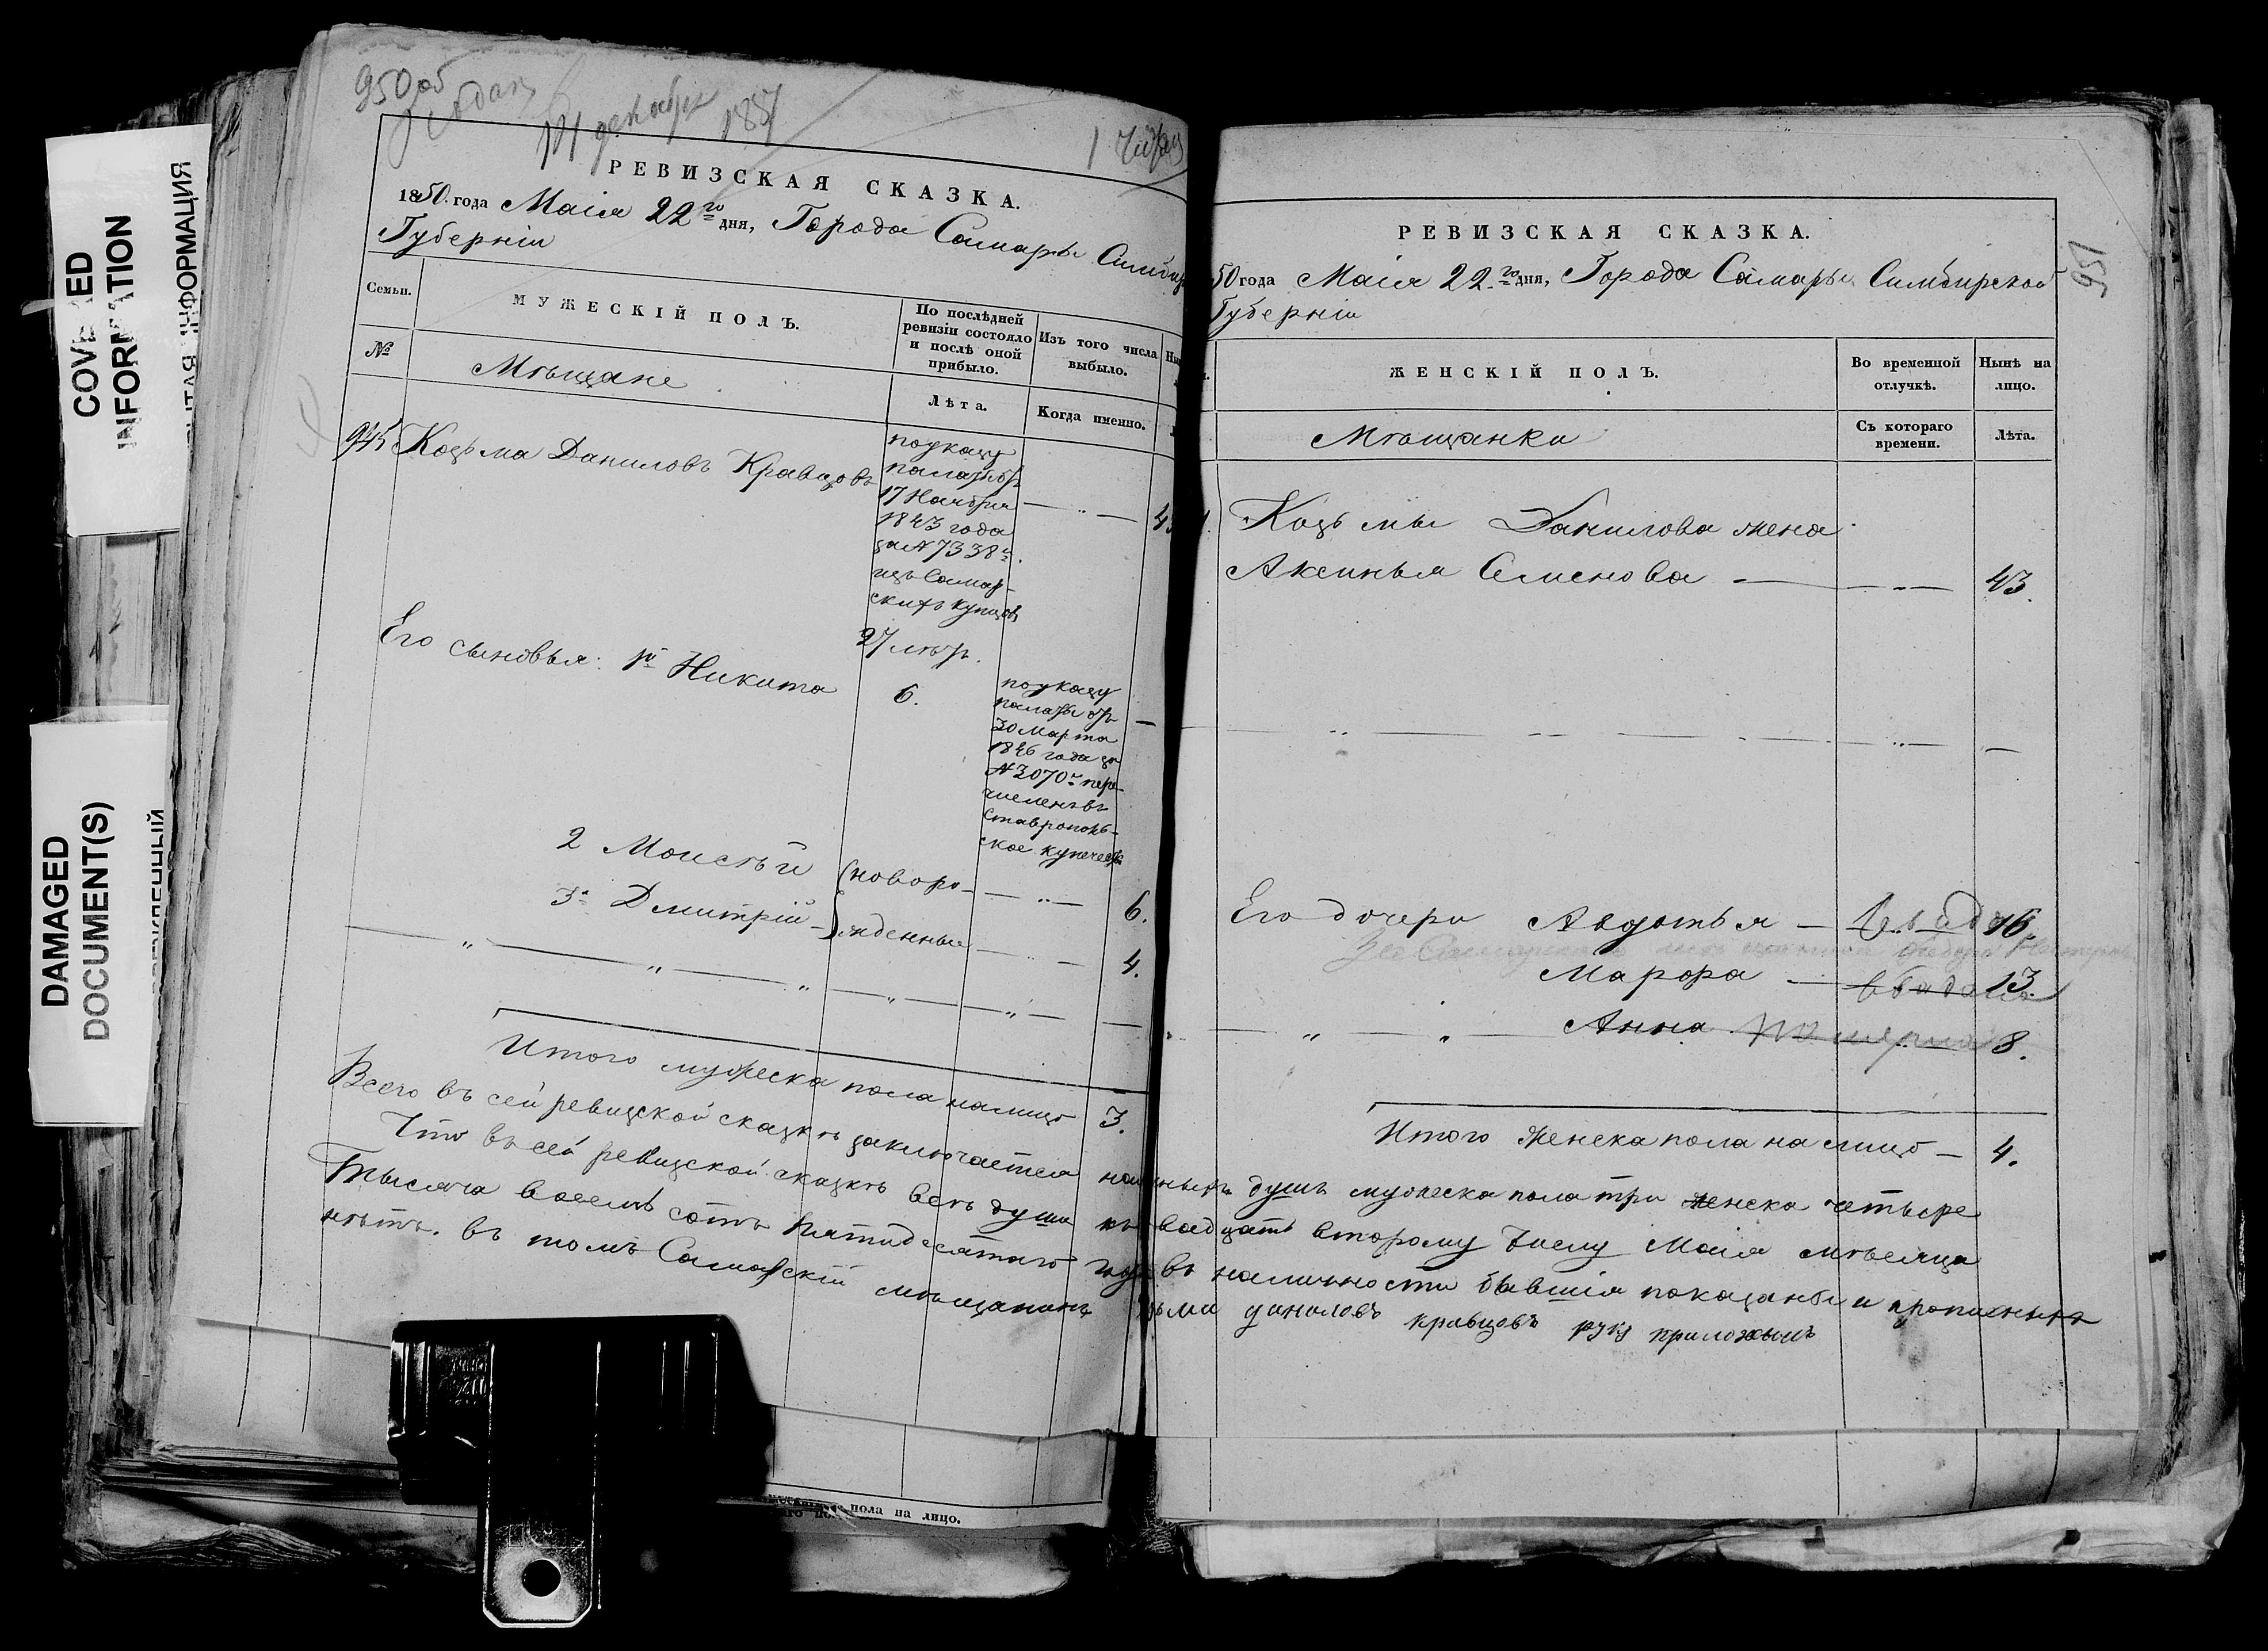 COVERED
INFORMATION
DAMAGED
DOCUMENT(S)
950 об
декабря 1857
РЕВИЗСКАЯ СКАЗКА.
1850. года Маія 22го дня, Города Самары
Губерніи
Семьи.
№
МУЖЕСКІЙ ПОЛЪ.
Мѣщане
По послѣдней
ревизіи состояло
и послѣ оной
прибыло.
Лѣта.
Изъ того числа
выбыло.
Когда именно.
945 Козьма Даниловъ Кравцовъ
по указу
палаты отъ
17 Ноября
1843 года
за № 7338м
изъ Самар-
скихъ купцовъ
27 лѣтъ.
Его сыновья: 1й Никита
6.
по указу
палаты отъ
30 Марта
1846 года за
№ 3070м пере-
численъ въ
Ставрополь-
ское купечество
2 Моисѣй (новоро- 6.
3й Дмитрій жденные 4.
Итого мужеска пола налицо 3.
РЕВИЗСКАЯ СКАЗКА.
50 года Маія 22го дня, Города Самары Симбирской
Губерніи
951
ЖЕНСКІЙ ПОЛЪ.
Мѣщанки
Во временной
отлучкѣ.
Съ котораго
времени.
Нынѣ на
лицо.
Лѣта.
Козьмы Данилова жена
Аксинья Семенова 43.
Его дочери Авдотья 16.
Марфа 13.
Анна 8.
Итого женска пола на лицо 4.
Всего въ сей ревизской сказкѣ заключается наличныхъ душъ мужеска пола три женска четыре
Что въ сей ревизской сказкѣ всѣ души къ двадцать второму числу Маія мѣсяца
тысяча восемь сотъ пятидесятаго года въ наличности бывшія показаны и прописныхъ
нѣтъ. въ томъ Самарскій мѣщанинъ даниловъ кравцовъ руку приложилъ
пола на лицо.